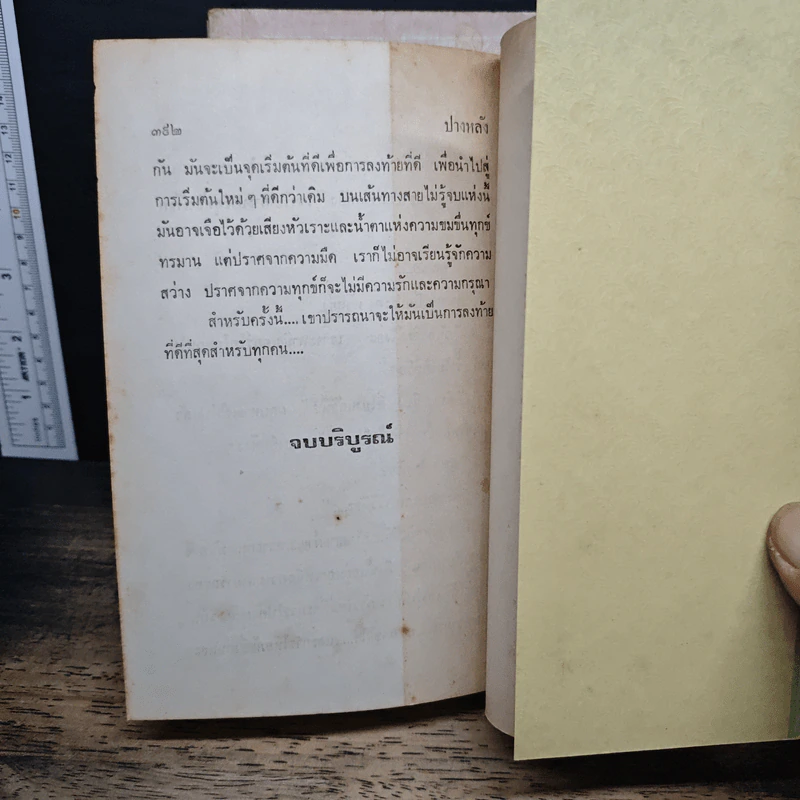 ๓๙๒ ปางหลัง
กัน มันจะเป็นจุดเริ่มต้นที่ดีเพื่อการลงท้ายที่ดี เพื่อนำไปสู่
การเริ่มต้นใหม่ ๆ ที่ดีกว่าเดิม บนเส้นทางสายไม่รู้จบแห่งนี้
มันอาจเจือไว้ด้วยเสียงหัวเราะและน้ำตาแห่งความขมขื่นทุกข์
ทรมาน แต่ปราศจากความมืด เราก็ไม่อาจเรียนรู้จักความ
สว่าง ปราศจากความทุกข์ก็จะไม่มีความรักและความกรุณา
สำหรับครั้งนี้.... เขาปรารถนาจะให้มันเป็นการลงท้าย
ที่ดีที่สุดสำหรับทุกคน....
จบบริบูรณ์